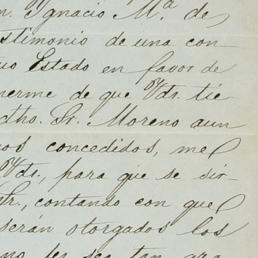 n. Ignacio M.ª de
estimonio de una con
uo Estado en favor de
nerme de que Vdr. tie
dho. Sr. Moreno aun
os concedidos, me
Vdr., para que se sir-
Sr., contando con que
serán otorgados los
no ser tan gra